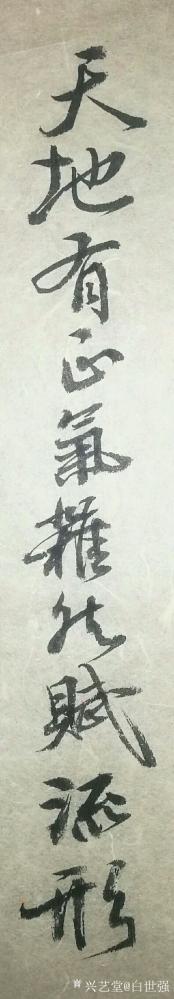 天地有正氣雜然賦流形
兴艺堂@白世强